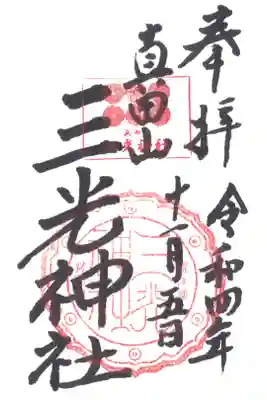 奉拝
令和四年
十一月五日
真田山
三光神社